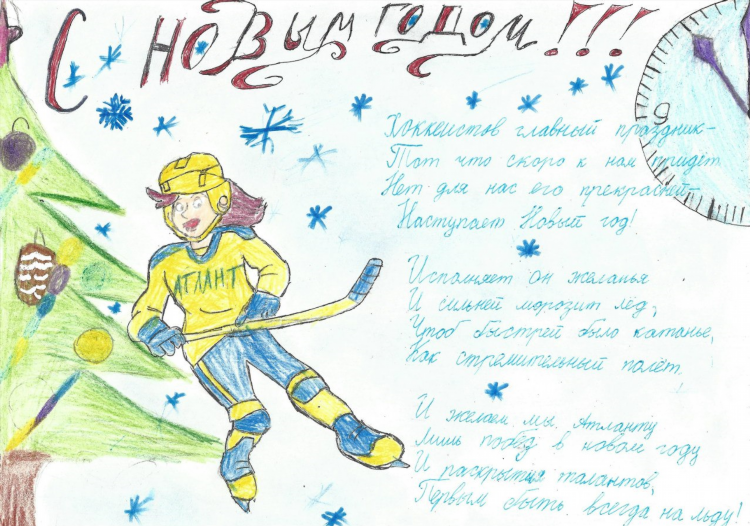 С НОВЫМ ГОДОМ!!!
9
Хоккеистов главный праздник-
Тот что скоро к нам придёт
Нет для нас его прекрасней-
Наступает Новый год!
АТЛАНТ
Исполняет он желанья
И сильней морозит лёд,
Чтоб быстрей было катанье,
Как стремительный полёт!
И желаем мы Атланту
Лишь побед в новом году
И раскрытия талантов,
Первым быть всегда на льду!